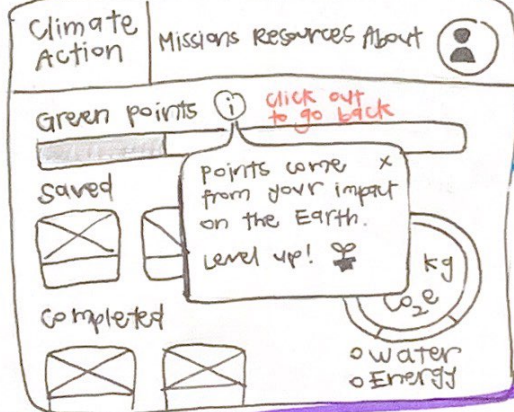 Climate
Action
Missions Resources About
Green points i
click out
to go back
points come x
from your impact
on the Earth.
Level up!
saved
kg
CO2e
completed
Water
Energy